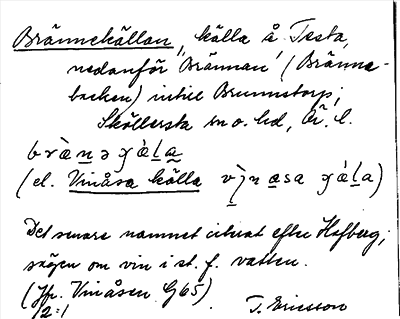 Brännekällan, källa å Testa,
nedanför "Brännan" (Bränne-
backen) intill Brunnstorp;
Sköllersta sn o. hd, Ör. l.
bræ̀nə ɟæ̀la
(el. Vinåsa källa vìnasa ɟæ̀la)
Det senare namnet citerat efter Hofberg;
sägen om vin i st. f. vatten.
(Jfr. Vinåsen G65)
T. Ericsson